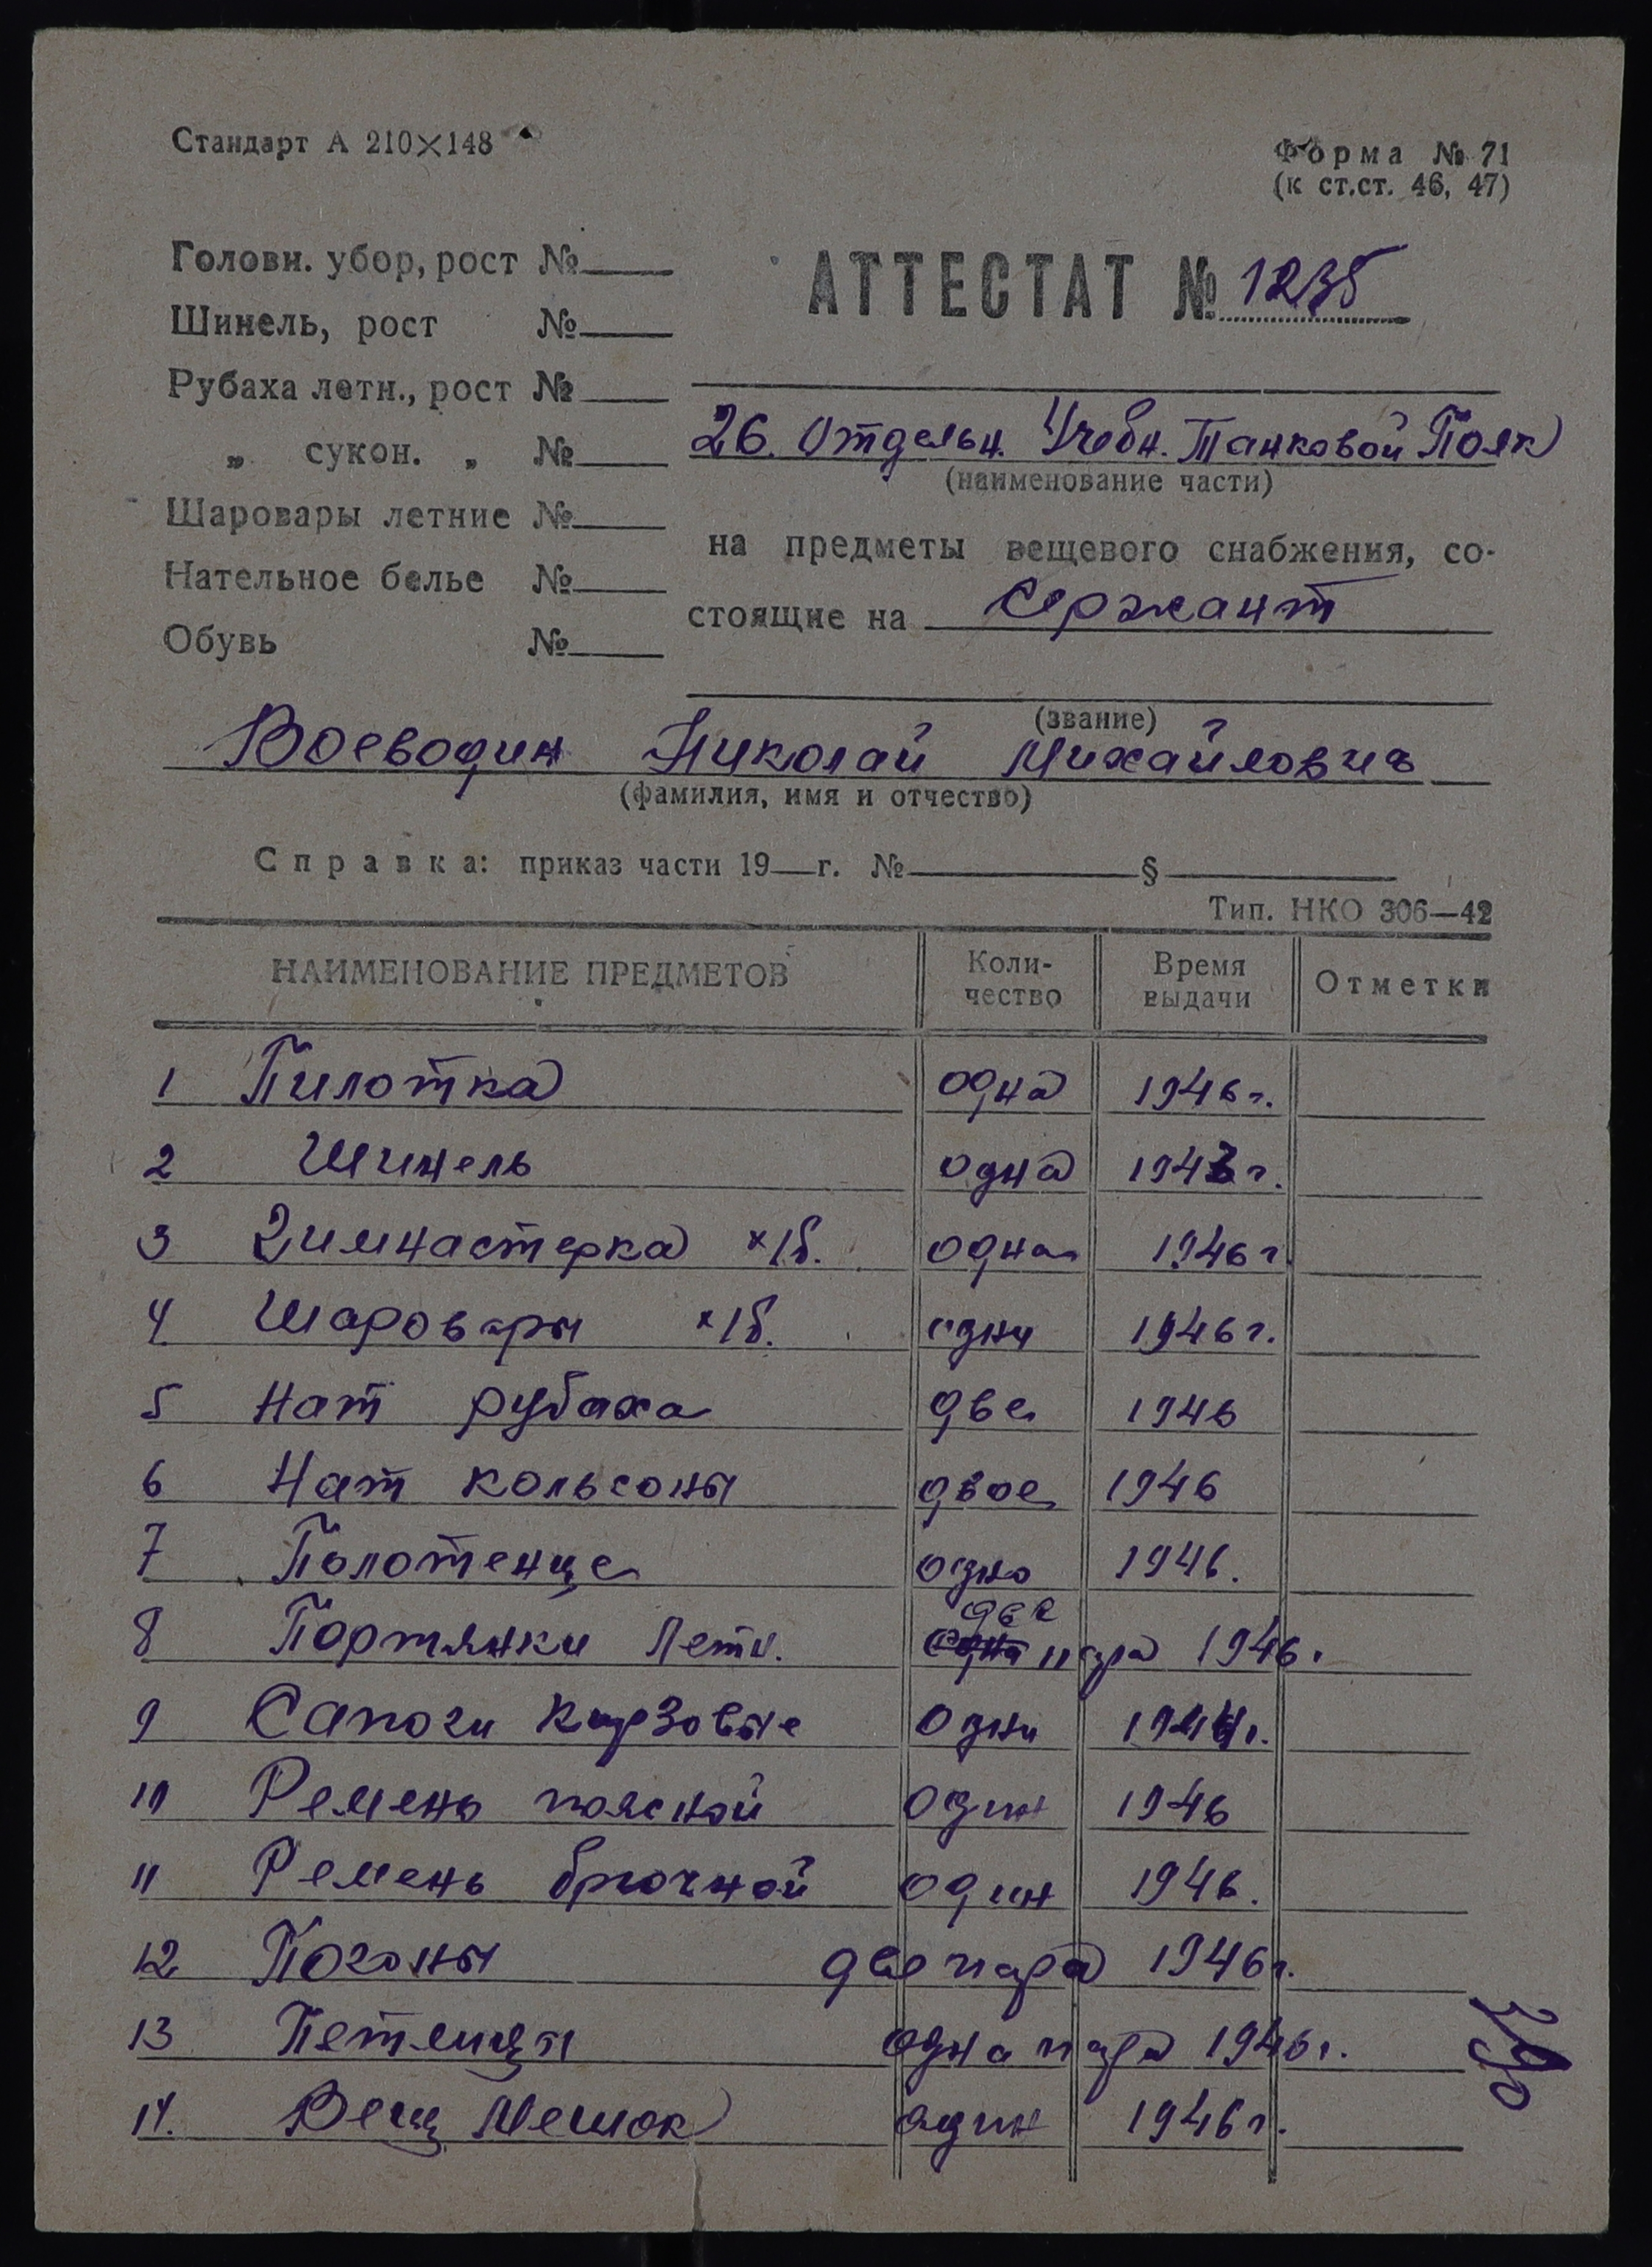 Стандарт А 210×148
Форма № 71
(к ст.ст. 46, 47)
Головн. убор, рост №
Шинель, рост №
Рубаха летн., рост №
„ сукон. „ №
Шаровары летние №
Нательное белье №
Обувь №
АТТЕСТАТ № 1235
26. Отдельн. Учебн. Танковой Полк
(наименование части)
на предметы вещевого снабжения, со-
стоящие на Сержант
(звание)
Воеводин Николай Михайлович
(фамилия, имя и отчество)
Справка: приказ части 19—г. № § 
Тип. НКО 306—42
НАИМЕНОВАНИЕ ПРЕДМЕТОВ Коли-чество Время выдачи Отметки
1 Пилотка одна 1946 г.
2 Шинель одна 1943 г.
3 Гимнастерка х/б. одна 1946 г
4 Шаровары х/б. одни 1946 г.
5 Нат рубаха две 1946
6 Нат кольсоны двое 1946
7 Полотенце одно 1946.
8 Портянки Летн. две пара 1946.
9 Сапоги Кирзовые одни 1944 г.
10 Ремень поясной один 1946
11 Ремень брючной один 1946.
12 Погоны две пара 1946 г.
13 Петлицы одна пара 1946 г.
14. Вещ Мешок один 1946 г.